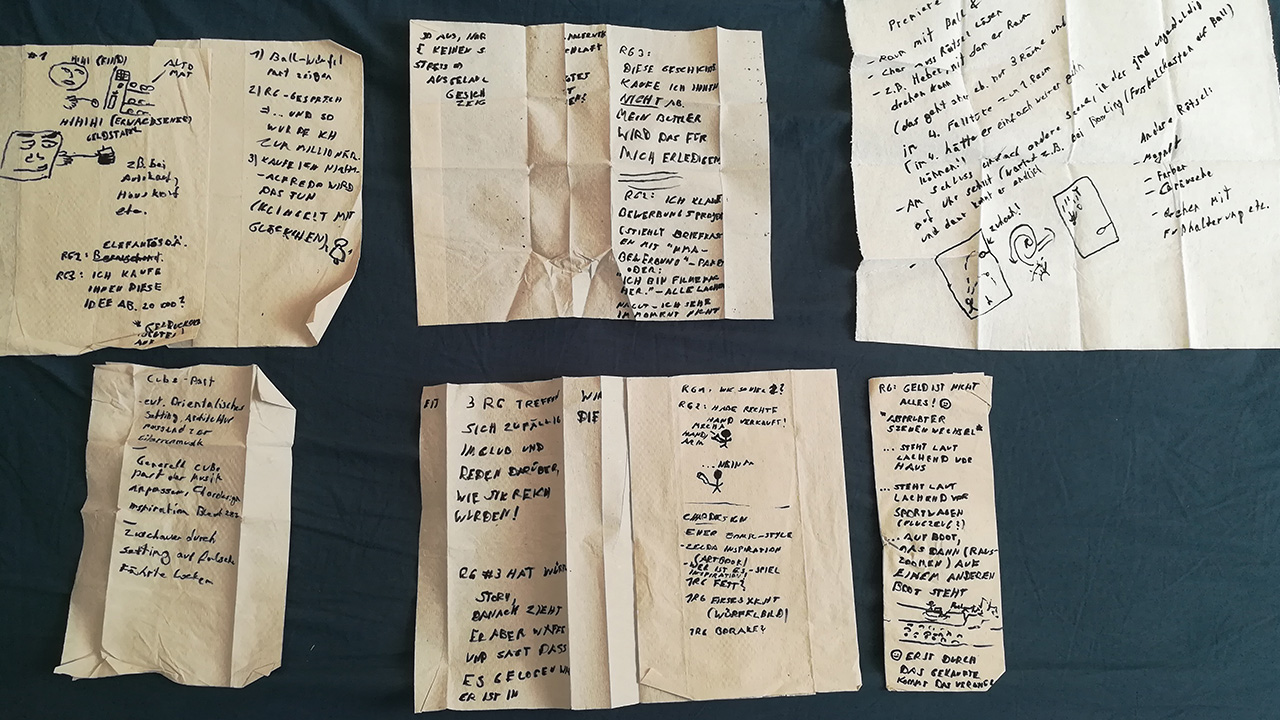 #1
HIHI (KIND)
AUTO
MAT
HIHIHI (ERWACHSENER)
GELDSTAPEL
zB bei
Autokauf,
Hauskauf
etc.
ELEFANTÖSDÄ.
RG2:
RG3: ICH KAUFE
IHNEN DIESE
IDEE AB. 20 000?
1) Ball-Würfel
Part zeigen
2) RG-GESPRÄCH
=... UND SO
WURDE ICH
ZUM MILLIONÄR.
3) KAUFE ICH NICHT
-ALFREDO WIRD
DAS TUN
(KLINGELT MIT
GLÖCKCHEN)
SO AUS, IHR
KEINEN S
STREIS
AUSGELAL
GESICH
ZEIG
RG3:
DIESE GESCHICHTE
KAUFE ICH IHNEN
NICHT AB.
MEIN BUTLER
WIRD DAS FÜR
MICH ERLEDIGEN
RG2: ICH KLAUE
BEWERBUNGSPROZE
(STIEHLT BRIEFKAS
EN MIT "MMA-
BEWERBUNG"-
ODER:
"ICH BIN FILMEMAC
HER."-ALLE LACHEN
NAGUT-ICH SEHE
IM MOMENT NICHT
Premiere
- Raum mit Ball &
- Char muss Rätsel lösen
- z.B. Hebel, mit dem er Raum
drehen kann
(das geht aber ab. nur 3 Räume und
in 4. Falltüre zum 1 Raum
(in 4. hätte er einfach weiter gehn
können!!
- Am Schluss einfach andere Scene, in der grad ungeduldig
auf Uhr sehn (wartet z.B. bei Bowling/Fussballkasten auf Ball)
und dann kommt er endlich
Andere Rätsel:
- Magnet
- Farben
- Geräusche
- drehen mit
Fußhalterung etc.
Cube-Part
-evt. Orientalisches
Setting, Architektur
passend zur
Gitarrenmusik
Generell Cube
part der Musik
anpassen,
Inspiration
Zuschauer durch
Setting auf falsche
Fährte locken
3 RG TREFFEN
SICH ZUFÄLLIG
IM CLUB UND
REDEN DARÜBER,
WIE SIE REICH
WURDEN!
RG #3 HAT
STORY,
DANACH ZIEHT
ER ABER WAFFE
UND SAGT DASS
ES GELOGEN WAR
ER IST IN
WIR
DIE
RG1: WIESO NUR 2?
RG2: HABE RECHTE
HAND VERKAUFT!
MECHA
HAND/
ARM
...NEIN
CHARDESIGN
EHER COMIC-STYLE
-ZELDA INSPIRATION
(ARTBOOK)
-WER IST ES-SPIEL
INSPIRATION!
1RG FETT?
1RG FIESES GSICHT
(WÜRFELBILD)
1RG BORAKE?
RG: GELD IST NICHT
ALLES!
*ABRUPTER
SZENENWECHSEL*
... STEHT LAUT
LACHEND VOR
HAUS
... STEHT LAUT
LACHEND VOR
SPORTWAGEN
(FLUGZEUG?)
... AUF BOOT,
DAS DANN (RAUS-
ZOOMEN) AUF
EINEM ANDEREN
BOOT STEHT
ERST DURCH
DAS GEKAUFTE
KOMMT DAS